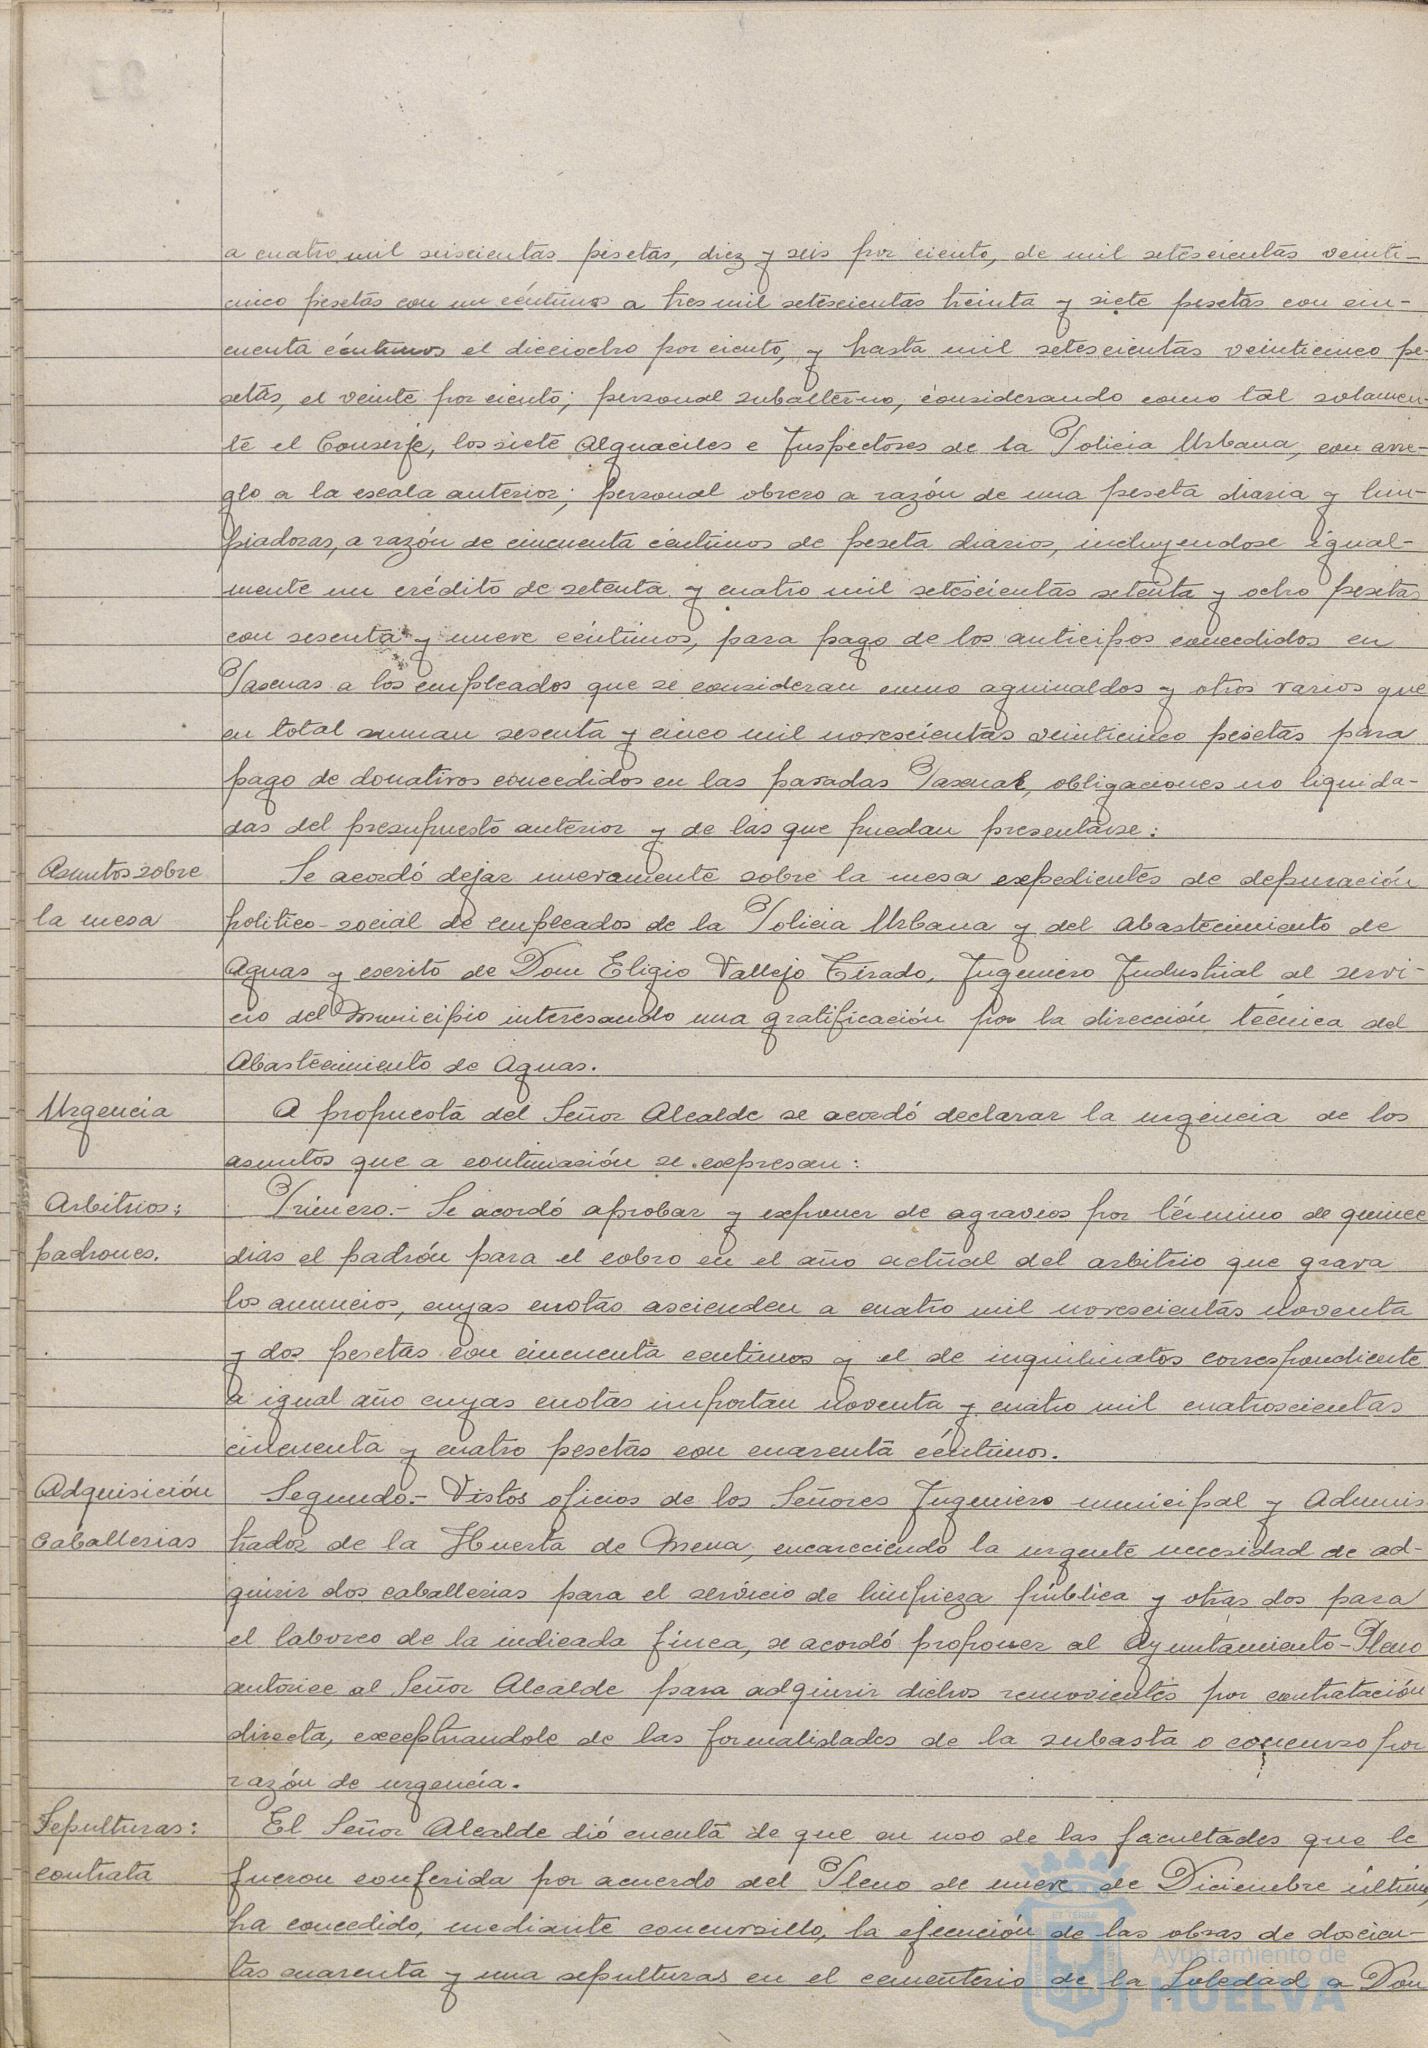 a cuatro mil seiscientas pesetas, diez y seis por ciento, de mil setescientas veinti-
cinco pesetas con un céntimos a tres mil setescientas treinta y siete pesetas con cin-
cuenta céntimos el dieciocho por ciento, y hasta mil setescientas veinticinco pe-
setas, el veinte por ciento; personal subalterno, considerando como tal solamen-
te el Conserje, los siete Alguaciles e Inspectores de la Policia Urbana, con arre-
glo a la escala anterior; personal obrero a razón de una peseta diaria y lim-
piadoras, a razón de cincuenta céntimos de peseta diarios, incluyendose igual-
mente un crédito de setenta y cuatro mil setescientas setenta y ocho pesetas
con sesenta y nueve céntimos, para pago de los anticipos concedidos en
Pascuas a los empleados que se consideran como aguinaldos y otros varios que
en total suman sesenta y cinco mil novescientas veinticinco pesetas para
pago de donativos concedidos en las pasadas Pascuas, obligaciones no liquida-
das del presupuesto anterior y de las que puedan presentarse:
Asuntos sobre
la mesa
Se acordó dejar nuevamente sobre la mesa expedientes de depuración
politico-social de empleados de la Policia Urbana y del Abastecimiento de
Aguas y escrito de Don Eligio Vallejo Tirado, Ingeniero Industrial al servi-
cio del Municipio interesando una gratificación por la dirección técnica del
Abastecimiento de Aguas.
Urgencia
A propuesta del Señor Alcalde se acordó declarar la urgencia de los
asuntos que a continuación se expresan:
Arbitrios:
padrones.
Primero.- Se acordó aprobar y exponer de agravios por término de quince
dias el padrón para el cobro en el año actual del arbitrio que grava
los anuncios, cuyas cuotas ascienden a cuatro mil novescientas noventa
y dos pesetas con cincuenta centimos y el de inquilinatos correspondiente
a igual año cuyas cuotas importan noventa y cuatro mil cuatroscientas
cincuenta y cuatro pesetas con cuarenta céntimos.
Adquisición
caballerias
Segundo.- Vistos oficios de los Señores Ingeniero municipal y Adminis
trador de la Huerta de Mena, encareciendo la urgente necesidad de ad-
quirir dos caballerias para el servicio de limpieza pública y otras dos para
el laboreo de la indicada finca, se acordó proponer al Ayuntamiento-Pleno
autorice al Señor Alcalde para adquirir dichos semovientes por contratación
directa, exceptuandole de las formalidades de la subasta o concurso por
razón de urgencia.
Sepulturas:
contrata
El Señor Alcalde dió cuenta de que en uso de las facultades que le
fueron conferida por acuerdo del Pleno de nueve de Diciembre último,
ha concedido, mediante concursillo, la ejecución de las obras de doscien-
tas cuarenta y una sepulturas en el cementerio de la Soledad a Don
Ayuntamiento de
HUELVA